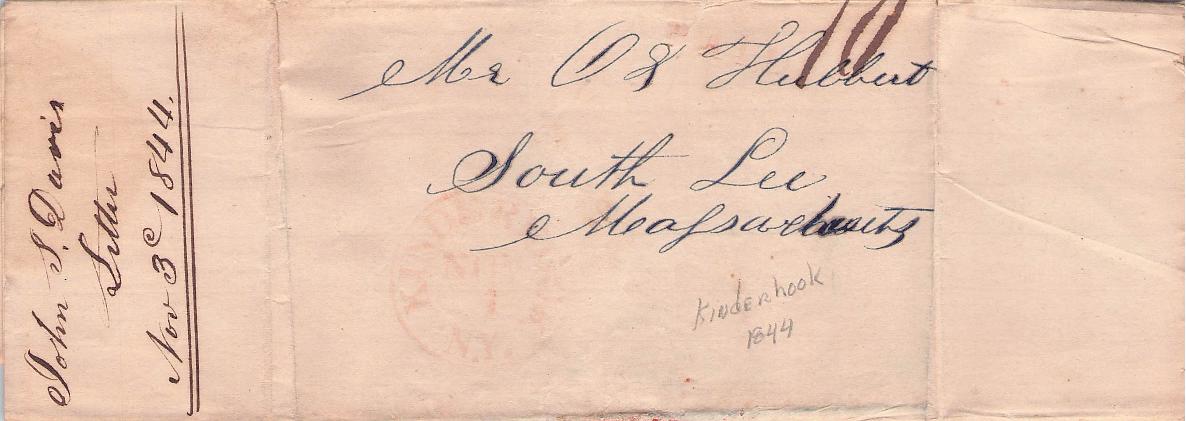 John S. Davis
Letter
Nov 3c 1844.
10
Mr O S Hubbert
South Lee
Massachusetts
N.Y.
Kinderhook
1844